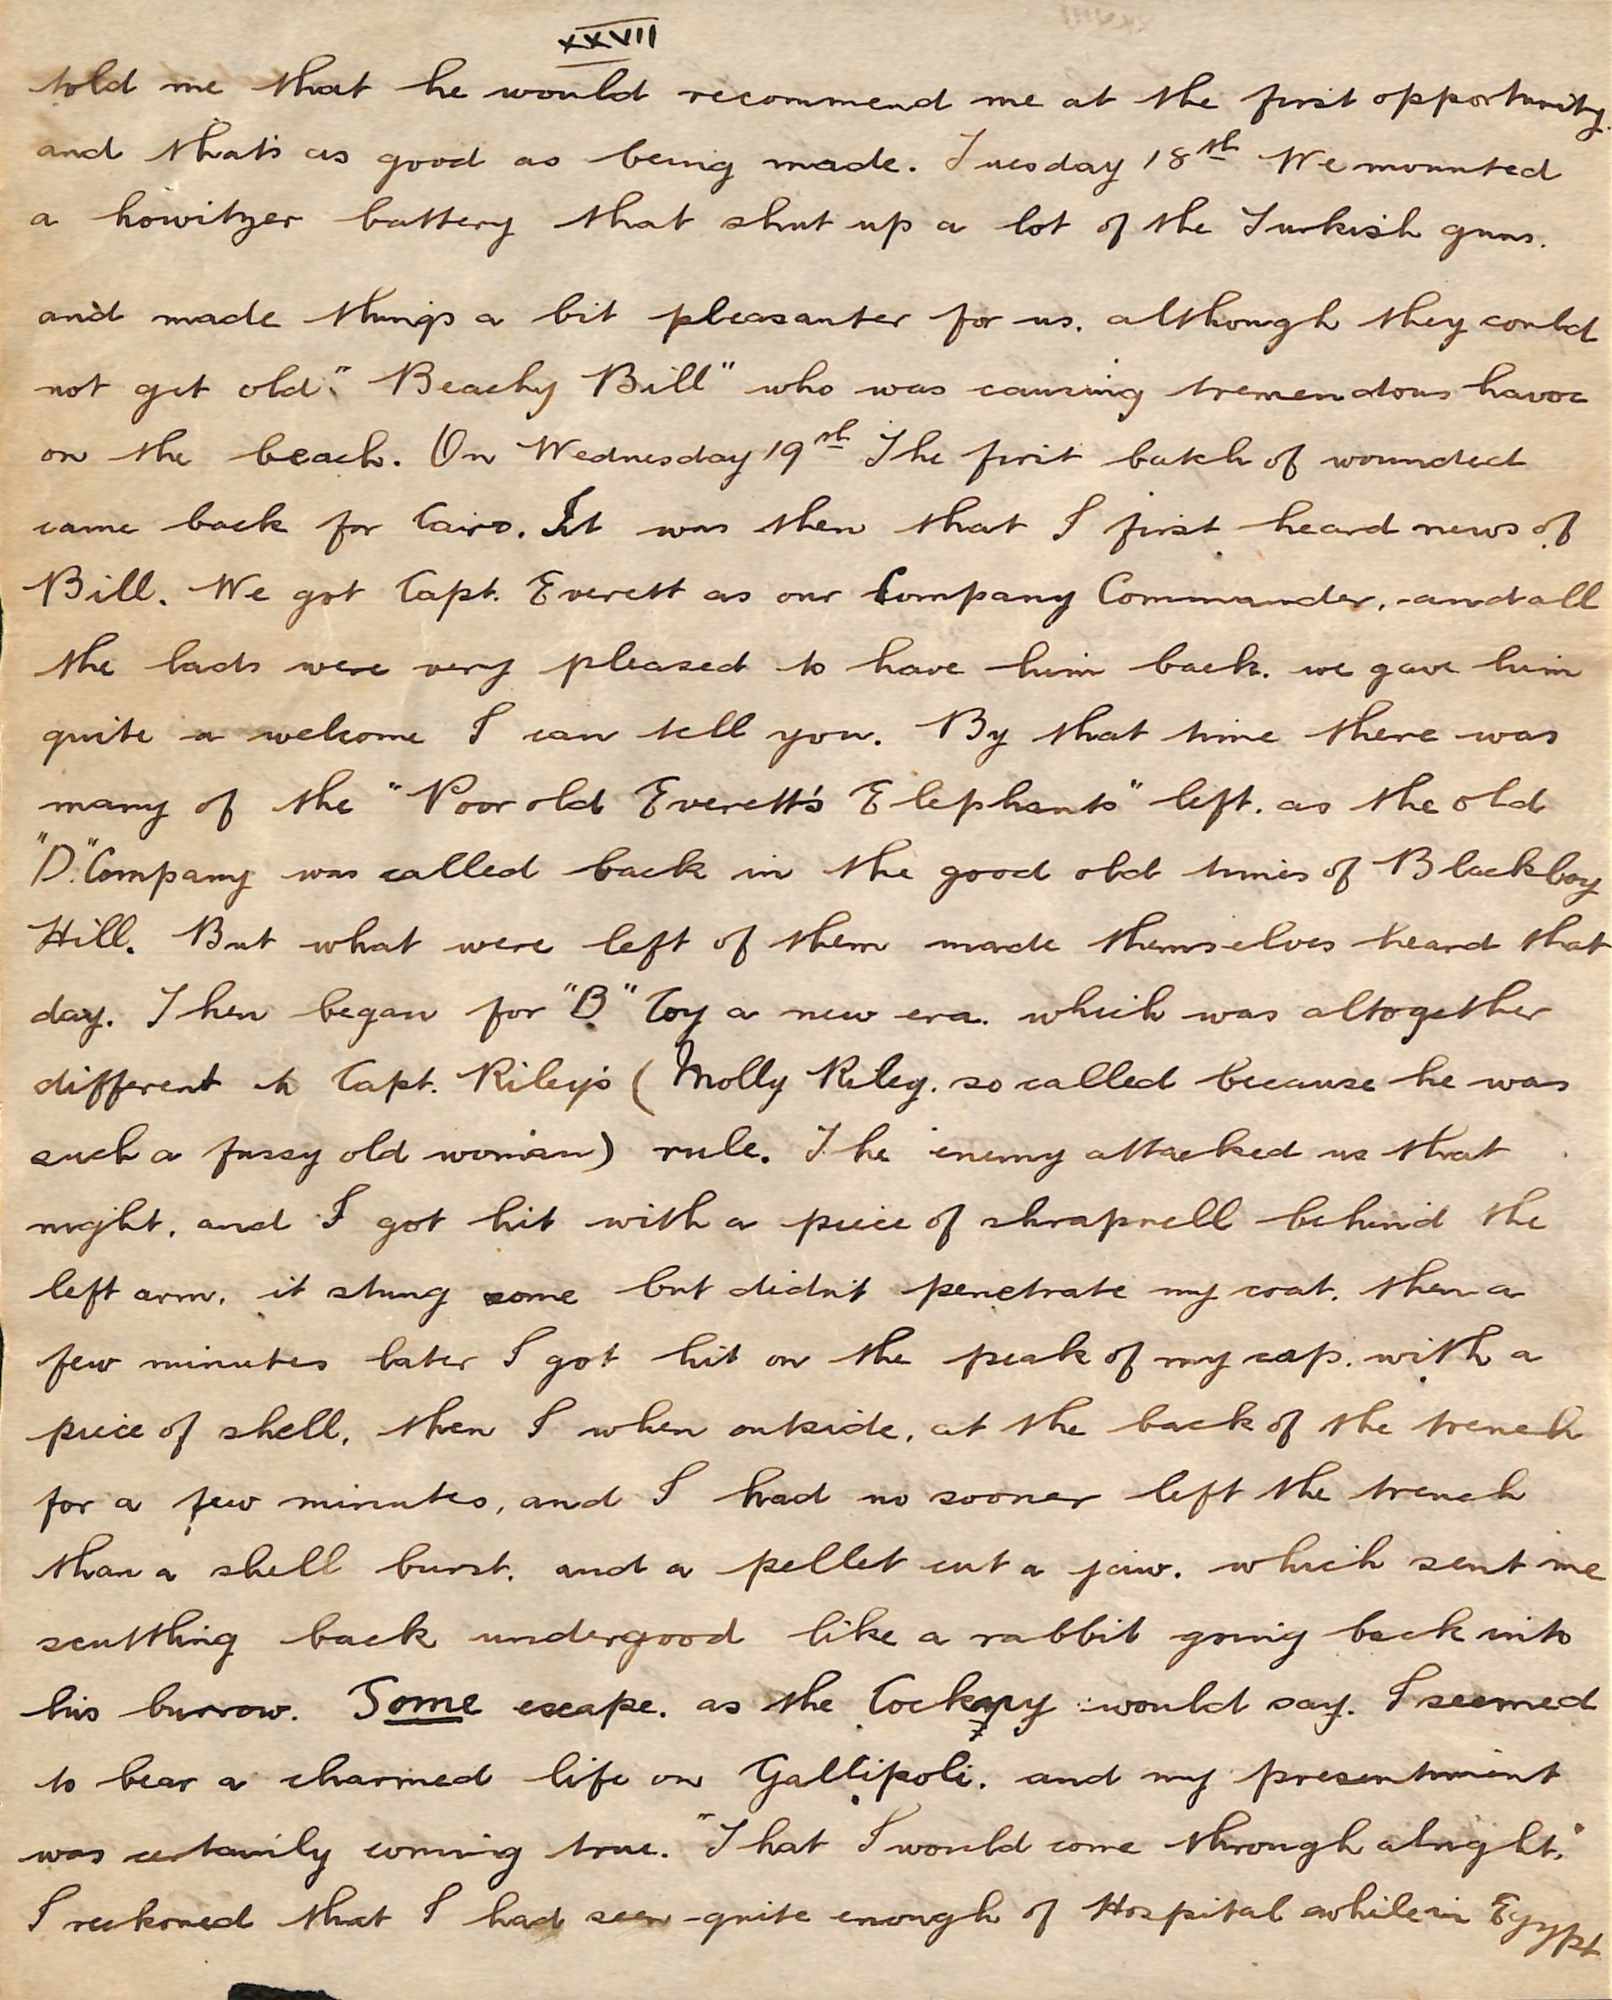 XXVII
told me that he would recommend me at the first opportunity.
and that's as good as being made. Tuesday 18th We mounted
a howitzer battery that shut up a lot of the Turkish guns.
and made things a bit pleasanter for us. although they could
not get old "Beachy Bill" who was causing tremendous havoc
on the beach. On Wednesday 19th The first batch of wounded
came back for Cairo. It was then that I first heard news of
Bill. We got Capt. Everett as our Company Commander, and all
the lads were very pleased to have him back. we gave him
quite a welcome I can tell you. By that time there was
many of the "Poor old Everett's Elephants" left. as the old
"D" Company was called back in the good old times of Blackboy
Hill. But what were left of them made themselves heard that
day. Then began for "B" Coy a new era. which was altogether
different to Capt. Riley's (Molly Riley. so called because he was
such a fussy old woman) rule. The enemy attacked us that
night. and I got hit with a piece of shrapnell behind the
left arm. it stung some but didn't penetrate my coat. then a
few minutes later I got hit on the peak of my cap. with a
piece of shell, then I when outside, at the back of the trench
for a few minutes, and I had no sooner left the trench
than a shell burst. and a pellet cut a jaw. which sent me
scuttling back undergood like a rabbit going back into
his burrow. Some escape. as the would say. I seemed
to bear a charmed life on Gallipoli. and my presentment
was certainly coming true. "That I would come through alright."
I reckoned that I had seen quite enough of Hospital while in Egypt